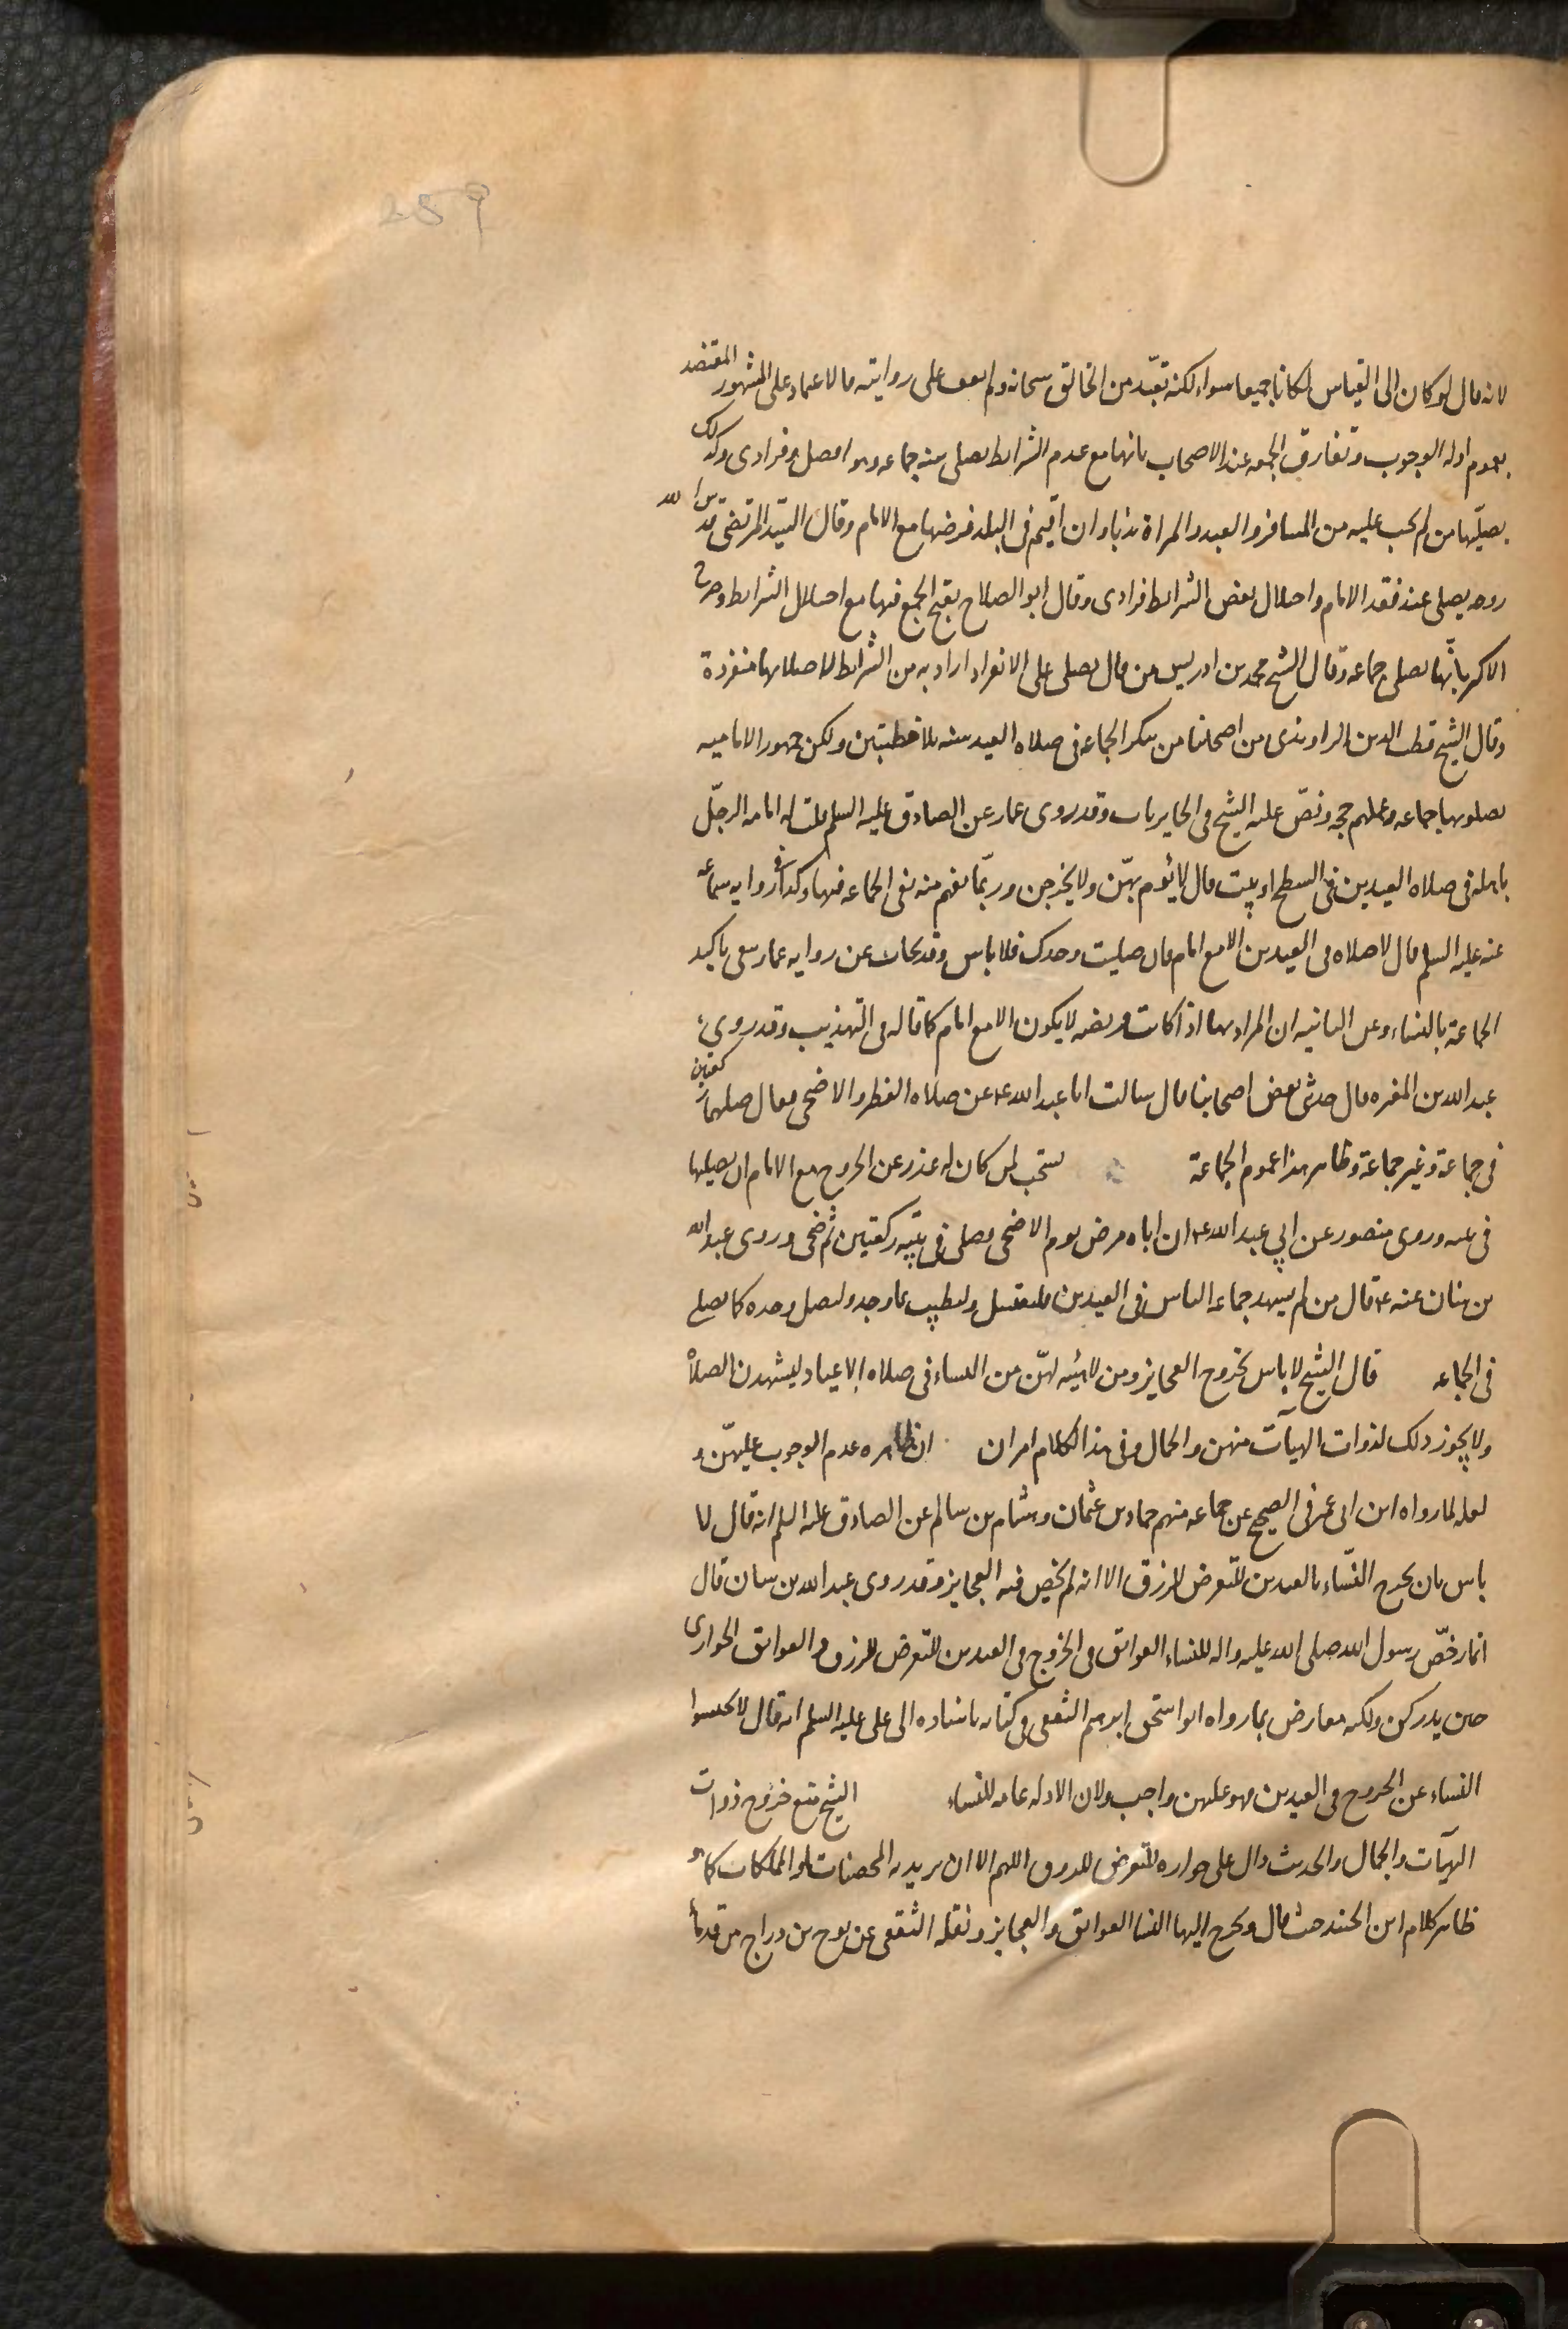 259
لانه قال لو كان الى القياس لكانا جميعا سواء ولكنه تعبّد من الخالق سبحانه ولم نقف على روايته فالاعتماد على المشهور المعتضد
بعموم ادلة الوجوب وتفارق الجمعه عند الاصحاب بانها مع عدم الشرايط يصلى سنه جماعه وهو افضل وفرادى وكذلك
يصلّيها من لم يجب عليه من المسافر والعبد والمراة ندبا وان اقيم فى البلد فرضها مع الامام وقال السيد المرتضى قدس الله
روحه يصلى عند فقد الامام واختلال بعض الشرايط فرادى وقال ابو الصلاح يقبح الجمع فيها مع اختلال الشرايط وصرح
الاكثر بانّها يصلى جماعه وقال الشيخ محمد بن ادريس من قال يصلى على الانفراد اراد به من الشرايط لا صلاتها منفردة
وقال الشيخ قطب الدين الراوندى من اصحابنا من ينكر الجماعه فى صلاه العيد سنه بلا خطبتين ولكن جمهور الاماميه
يصلونها جماعه وعملهم حجه ونصّ عليه الشيخ فى الحايريات وقد روى عمار عن الصادق عليه السلم قلت له امامه الرجل
باهله فى صلاه العيدين فى السطح او بيت قال لا يؤم بهنّ ولا يخرجن وربّما يفهم منه نفى الجماعه فيها وكذا فى روايه سماعه
عنه عليه السلم قال لا صلاه فى العيدين الا مع امام فان صليت وحدك فلا باس وقد يجاب عن روايه عمار بنفى تاكيد
الجماعة بالنساء وعن الثانيه ان المراد بها اذا كانت فريضه لا يكون الا مع امام كما قاله فى التهذيب وقد روى
عبد الله بن المغيره قال حدثنى بعض اصحابنا قال سالت ابا عبد الله ع عن صلاه الفطر والاضحى فقال صلهما ركعتين
فى جماعة وغير جماعة وظاهر هذا عموم الجماعة يستحب لمن كان له عذر عن الخروج مع الامام ان يصليها
فى بيته وروى منصور عن ابي عبد الله ع ان اباه مرض يوم الاضحى فصلى فى بيته ركعتين ثم ضحى وروى عبد الله
بن سنان عنه ع قال من لم يشهد جماعه الناس فى العيدين فليغتسل وليطيب بما وجد وليصل وحده كما يصلى
فى الجماعه قال الشيخ لا باس بخروج العجايز ومن لا هيئه لهنّ من النساء فى صلاه الاعياد ليشهدن الصلاة
ولا يجوز ذلك لذوات الهيآت منهن والجمال وفى هذا الكلام امران ان ظاهره عدم الوجوب عليهنّ و
لعله لما رواه ابن ابى عمير فى الصحيح عن جماعه منهم حماد بن عثمان وهشام بن سالم عن الصادق عليه السلم انه قال لا
باس بان يخرج النّساء بالعيدين للتعرض للرزق الا انه لم يخص فيه العجايز وقد روى عبد الله بن سنان قال
انما رخّص رسول الله صلى الله عليه واله للنساء العواتق فى الخروج فى العيدين للتعرض للرزق والعواتق الجوارى
حين يدركن ولكنه معارض بما رواه ابو اسحق ابرهيم الثقفى فى كتابه باسناده الى على عليه السلم انه قال لا تحبسوا
النساء عن الخروج فى العيدين فهو عليهن واجب ولان الادله عامه للنساء الشيخ منع خروج ذوات
الهيآت والجمال والحديث دال على جوازه للتعرض للرزق اللهم الا ان يريد به المحصنات او المملكات كما هو
ظاهر كلام ابن الجنيد حيث قال ويخرج اليها النسا العواتق والعجايز ونقله الثقفى عن نوح بن دراج من قدماء